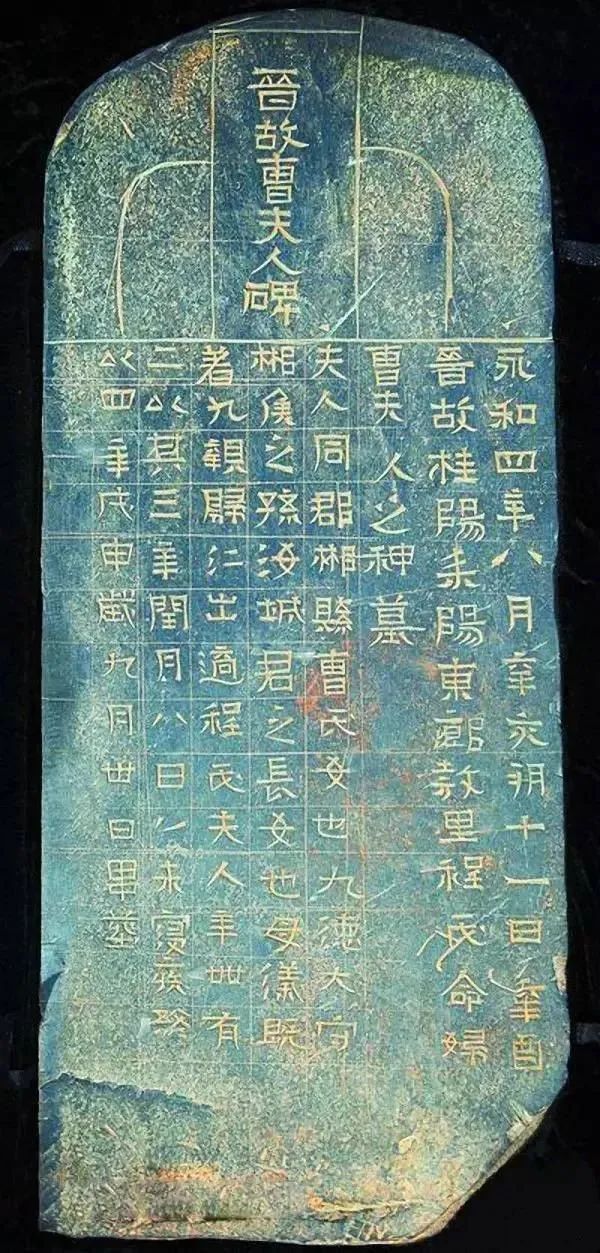 晉故曹夫人碑
永和四年八月辛亥朔十一日辛酉
晉故桂陽耒陽東鄉敎里程氏命婦
曹夫人之神墓
夫人同郡郴縣曹氏女也九德大守
郴侯之孫汝城君之長女也母儀既
著九親歸仁出適程氏夫人年卅有
二以其三年閏月八日以來寑疾終
以四年戊申歲九月卅日畢葬